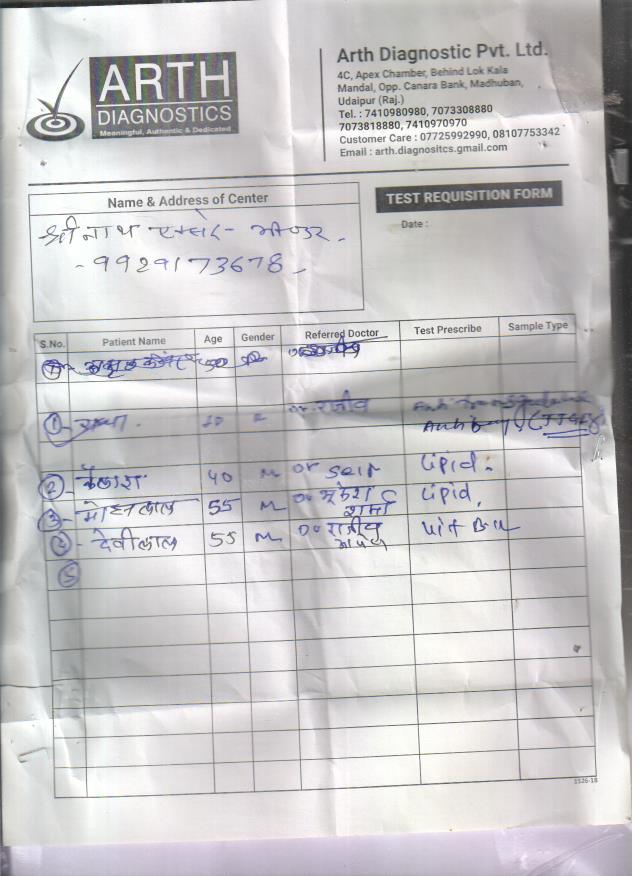 ARTH
DIAGNOSTICS
Meaningful, Authentic & Dedicated
Arth Diagnostic Pvt. Ltd.
4C, Apex Chamber, Behind Lok Kala
Mandal, Opp. Canara Bank, Madhuban,
Udaipur (Raj.)
Tel. : 7410980980, 7073308880
7073818880, 7410970970
Customer Care : 07725992990, 08107753342
Email : arth.diagnositcs.gmail.com
Name & Address of Center
श्री नाथ
- 9929173678
TEST REQUISITION FORM
Date :
S.No. Patient Name Age Gender Referred Doctor Test Prescribe Sample Type
50
① Dr राजीव Anti
Antibody (TTG
② कैलाश 40 M Dr Lipid
③ - मोहनलाल 55 M Dr मुकेश शर्मा Lipid
④ - देवीलाल 55 M Dr राजीव Vit B12
⑤
1526-18